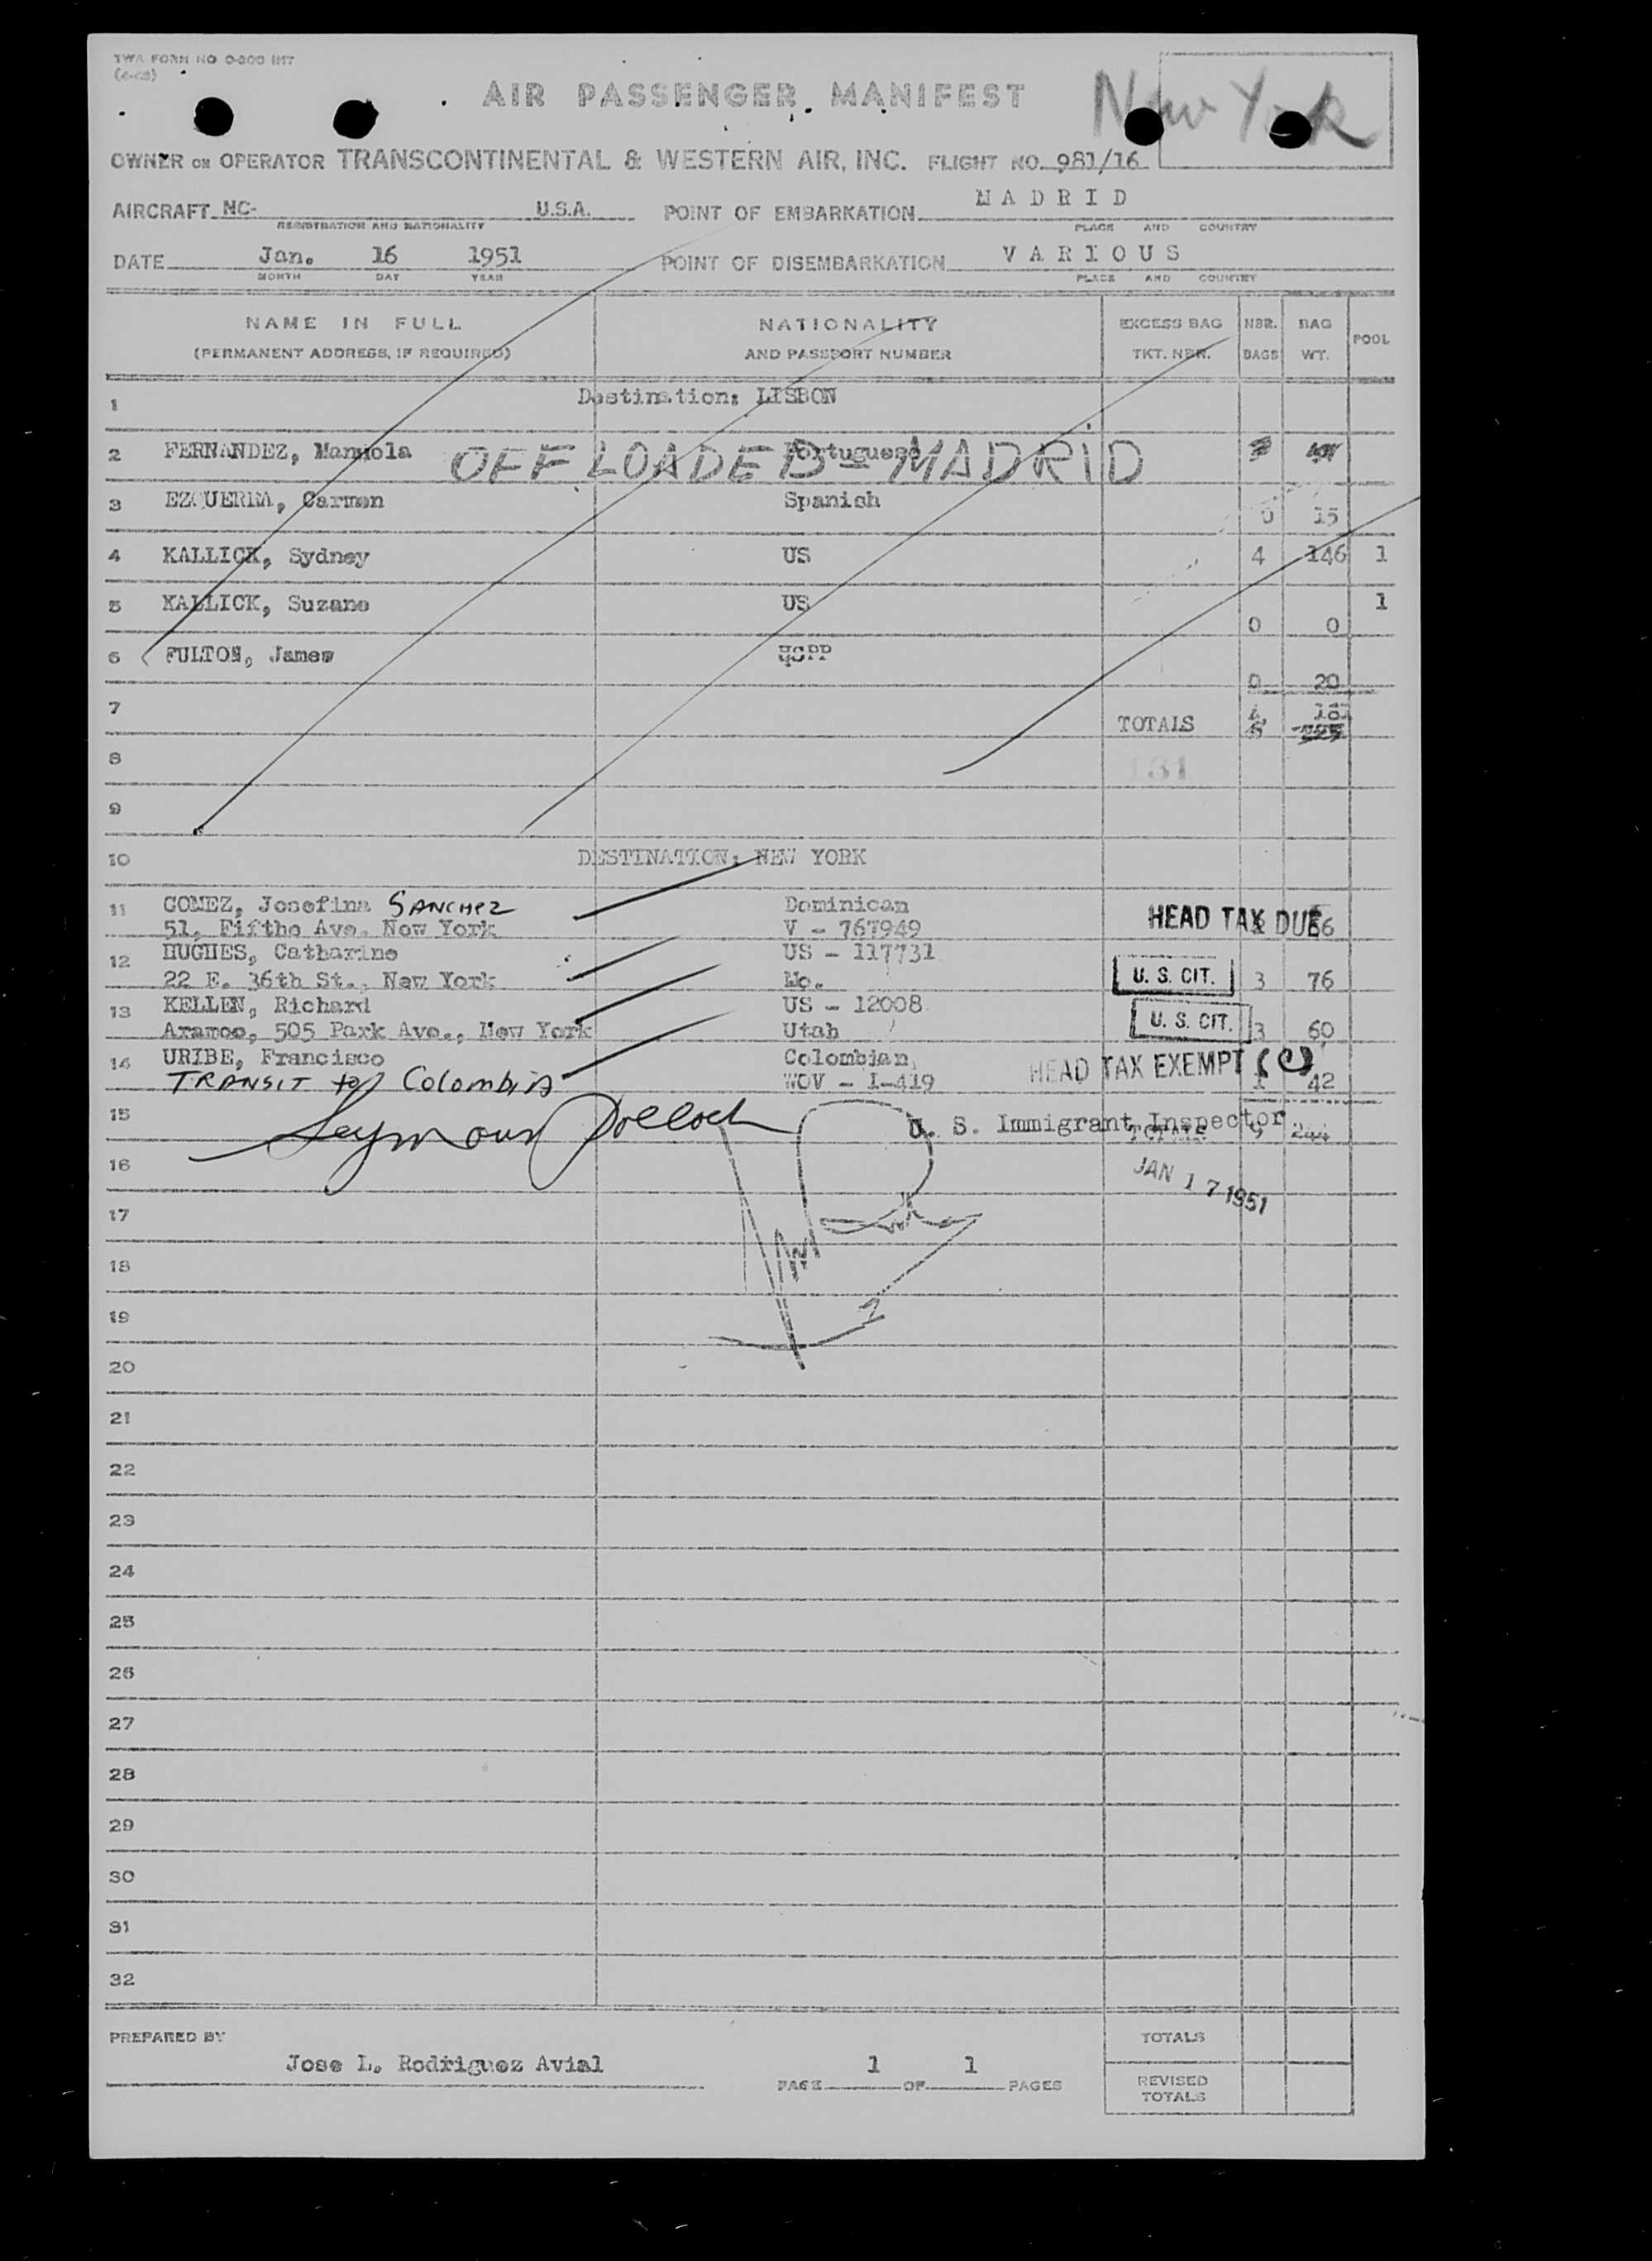 TWA FORM NO 0-800 INT
AIR PASSENGER MANIFEST
New York
OWNER OR OPERATOR TRANSCONTINENTAL & WESTERN AIR, INC. FLIGHT NO. 981/16
AIRCRAFT NC- U.S.A. POINT OF EMBARKATION MADRID
REGISTRATION AND NATIONALITY PLACE AND COUNTRY
DATE Jan. 16 1951 POINT OF DISEMBARKATION VARIOUS
MONTH DAY YEAR PLACE AND COUNTRY
NAME IN FULL NATIONALITY EXCESS BAG NBR. BAG POOL
(PERMANENT ADDRESS, IF REQUIRED) AND PASSPORT NUMBER TKT. NBR. BAGS WT.
1 Destination: LISBON
2 FERNANDEZ, Manuola Portuguese
OFF LOADED - MADRID
3 EZQUERRA, Carmen Spanish 0 15
4 KALLICK, Sydney US 4 146 1
5 KALLICK, Suzane US 0 0 1
6 FULTON, James USPP 0 20
7 TOTALS
8 131
9
10 DESTINATION: NEW YORK
11 GOMEZ, Josefina SANCHEZ Dominican HEAD TAX DUE
51, Fifthe Ave. New York V - 767949 66
12 HUGHES, Catharine US - 117731
22 E. 36th St., New York Mo. U. S. CIT. 3 76
13 KELLEN, Richard US - 12008
Aramco, 505 Park Ave., New York Utah U. S. CIT. 3 60
14 URIBE, Francisco Colombian HEAD TAX EXEMPT (C)
TRANSIT to Colombia WOV - I-419 1 42
15 Seymour Pollock U. S. Immigrant Inspector
TOTALS 9 244
16 JAN 17 1951
17
18
19
20
21
22
23
24
25
26
27
28
29
30
31
32
PREPARED BY TOTALS
Jose L. Rodriguez Avial 1 1
PAGE OF PAGES REVISED
TOTALS